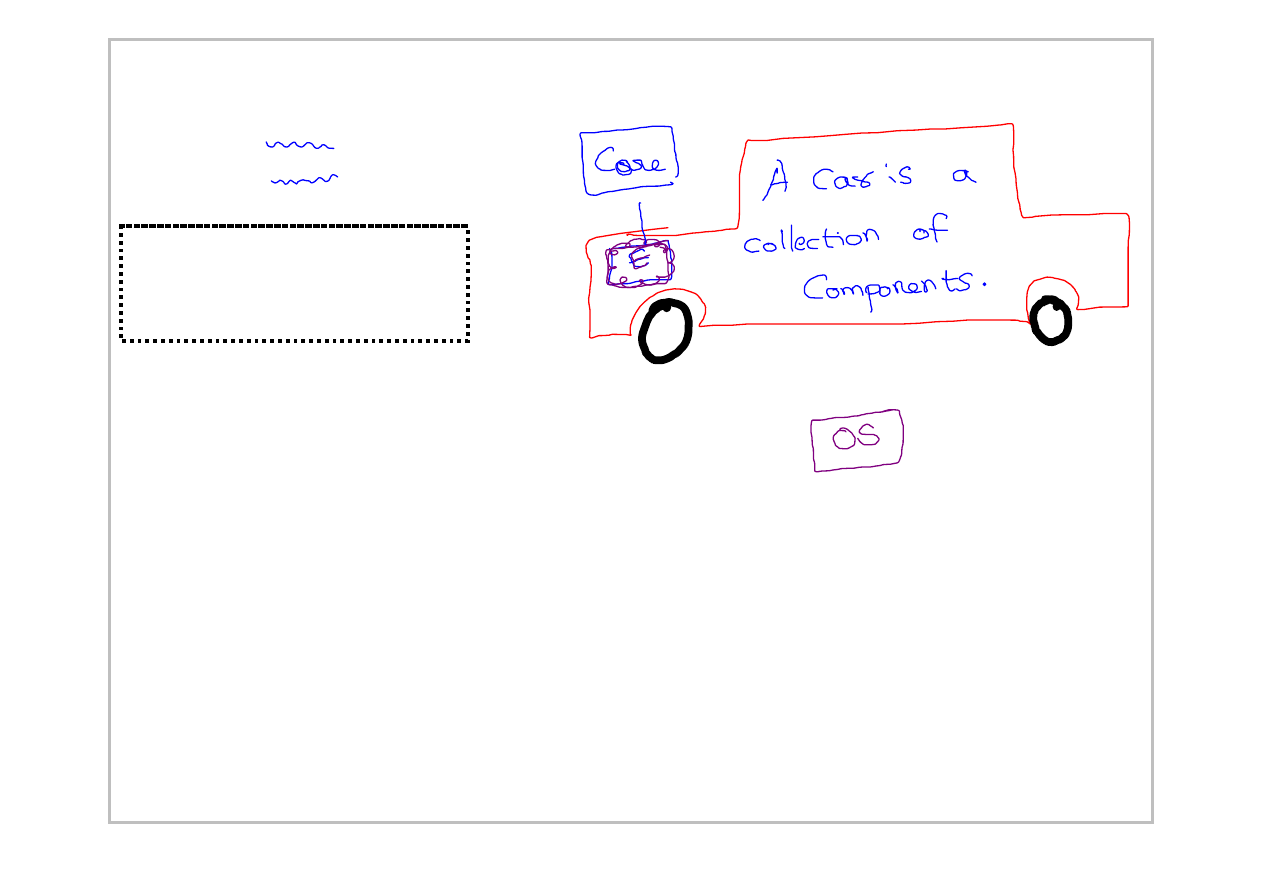 Core
A Car is a
collection of
Components.
E
OS